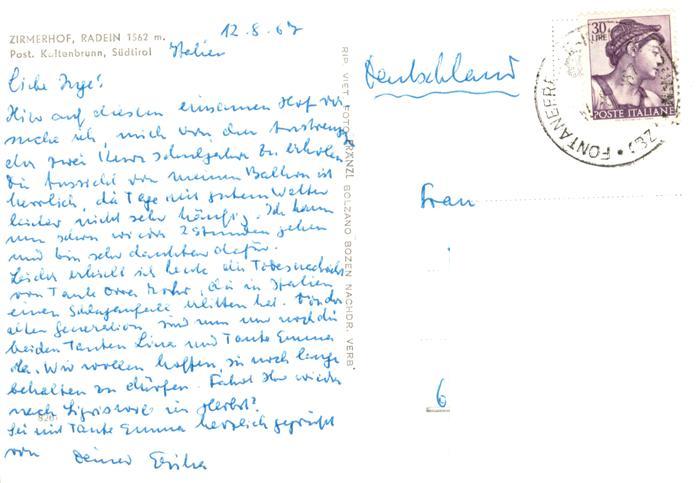 ZIRMERHOF, RADEIN 1562 m.
Post. Kaltenbrunn, Südtirol
12.8.67
Italien
Liebe Inge!
Hier auf diesem einsamen Hof ver-
suche ich, mich von den Anstrengg.
der zwei Kurzschuljahre zu erholen.
Die Aussicht von meinem Balkon ist
herrlich, die Tage mit gutem Wetter
leider nicht sehr häufig. Ich kann
nun schon wieder 2 Stunden gehen
und bin sehr dankbar dafür.
Leider erhielt ich heute die Todesnachricht
von Tante, die in Italien
einen Schlaganfall erlitten hat. Von der
alten Generation sind nun nur noch die
beiden Tanten Lina und Tante Emma
da. Wir wollen hoffen, sie noch lange
behalten zu dürfen. Fahrt Ihr wieder
nach in Herbst?
Sei mit Tante Emma herzlich gegrüßt
von Deiner Erika
8201
RIP. VIET. FOTO FRÄNZL BOLZANO BOZEN NACHDR. VERB.
Deutschland
Frau
6
30 LIRE
POSTE ITALIANE
FONTANEFRE
(BZ)